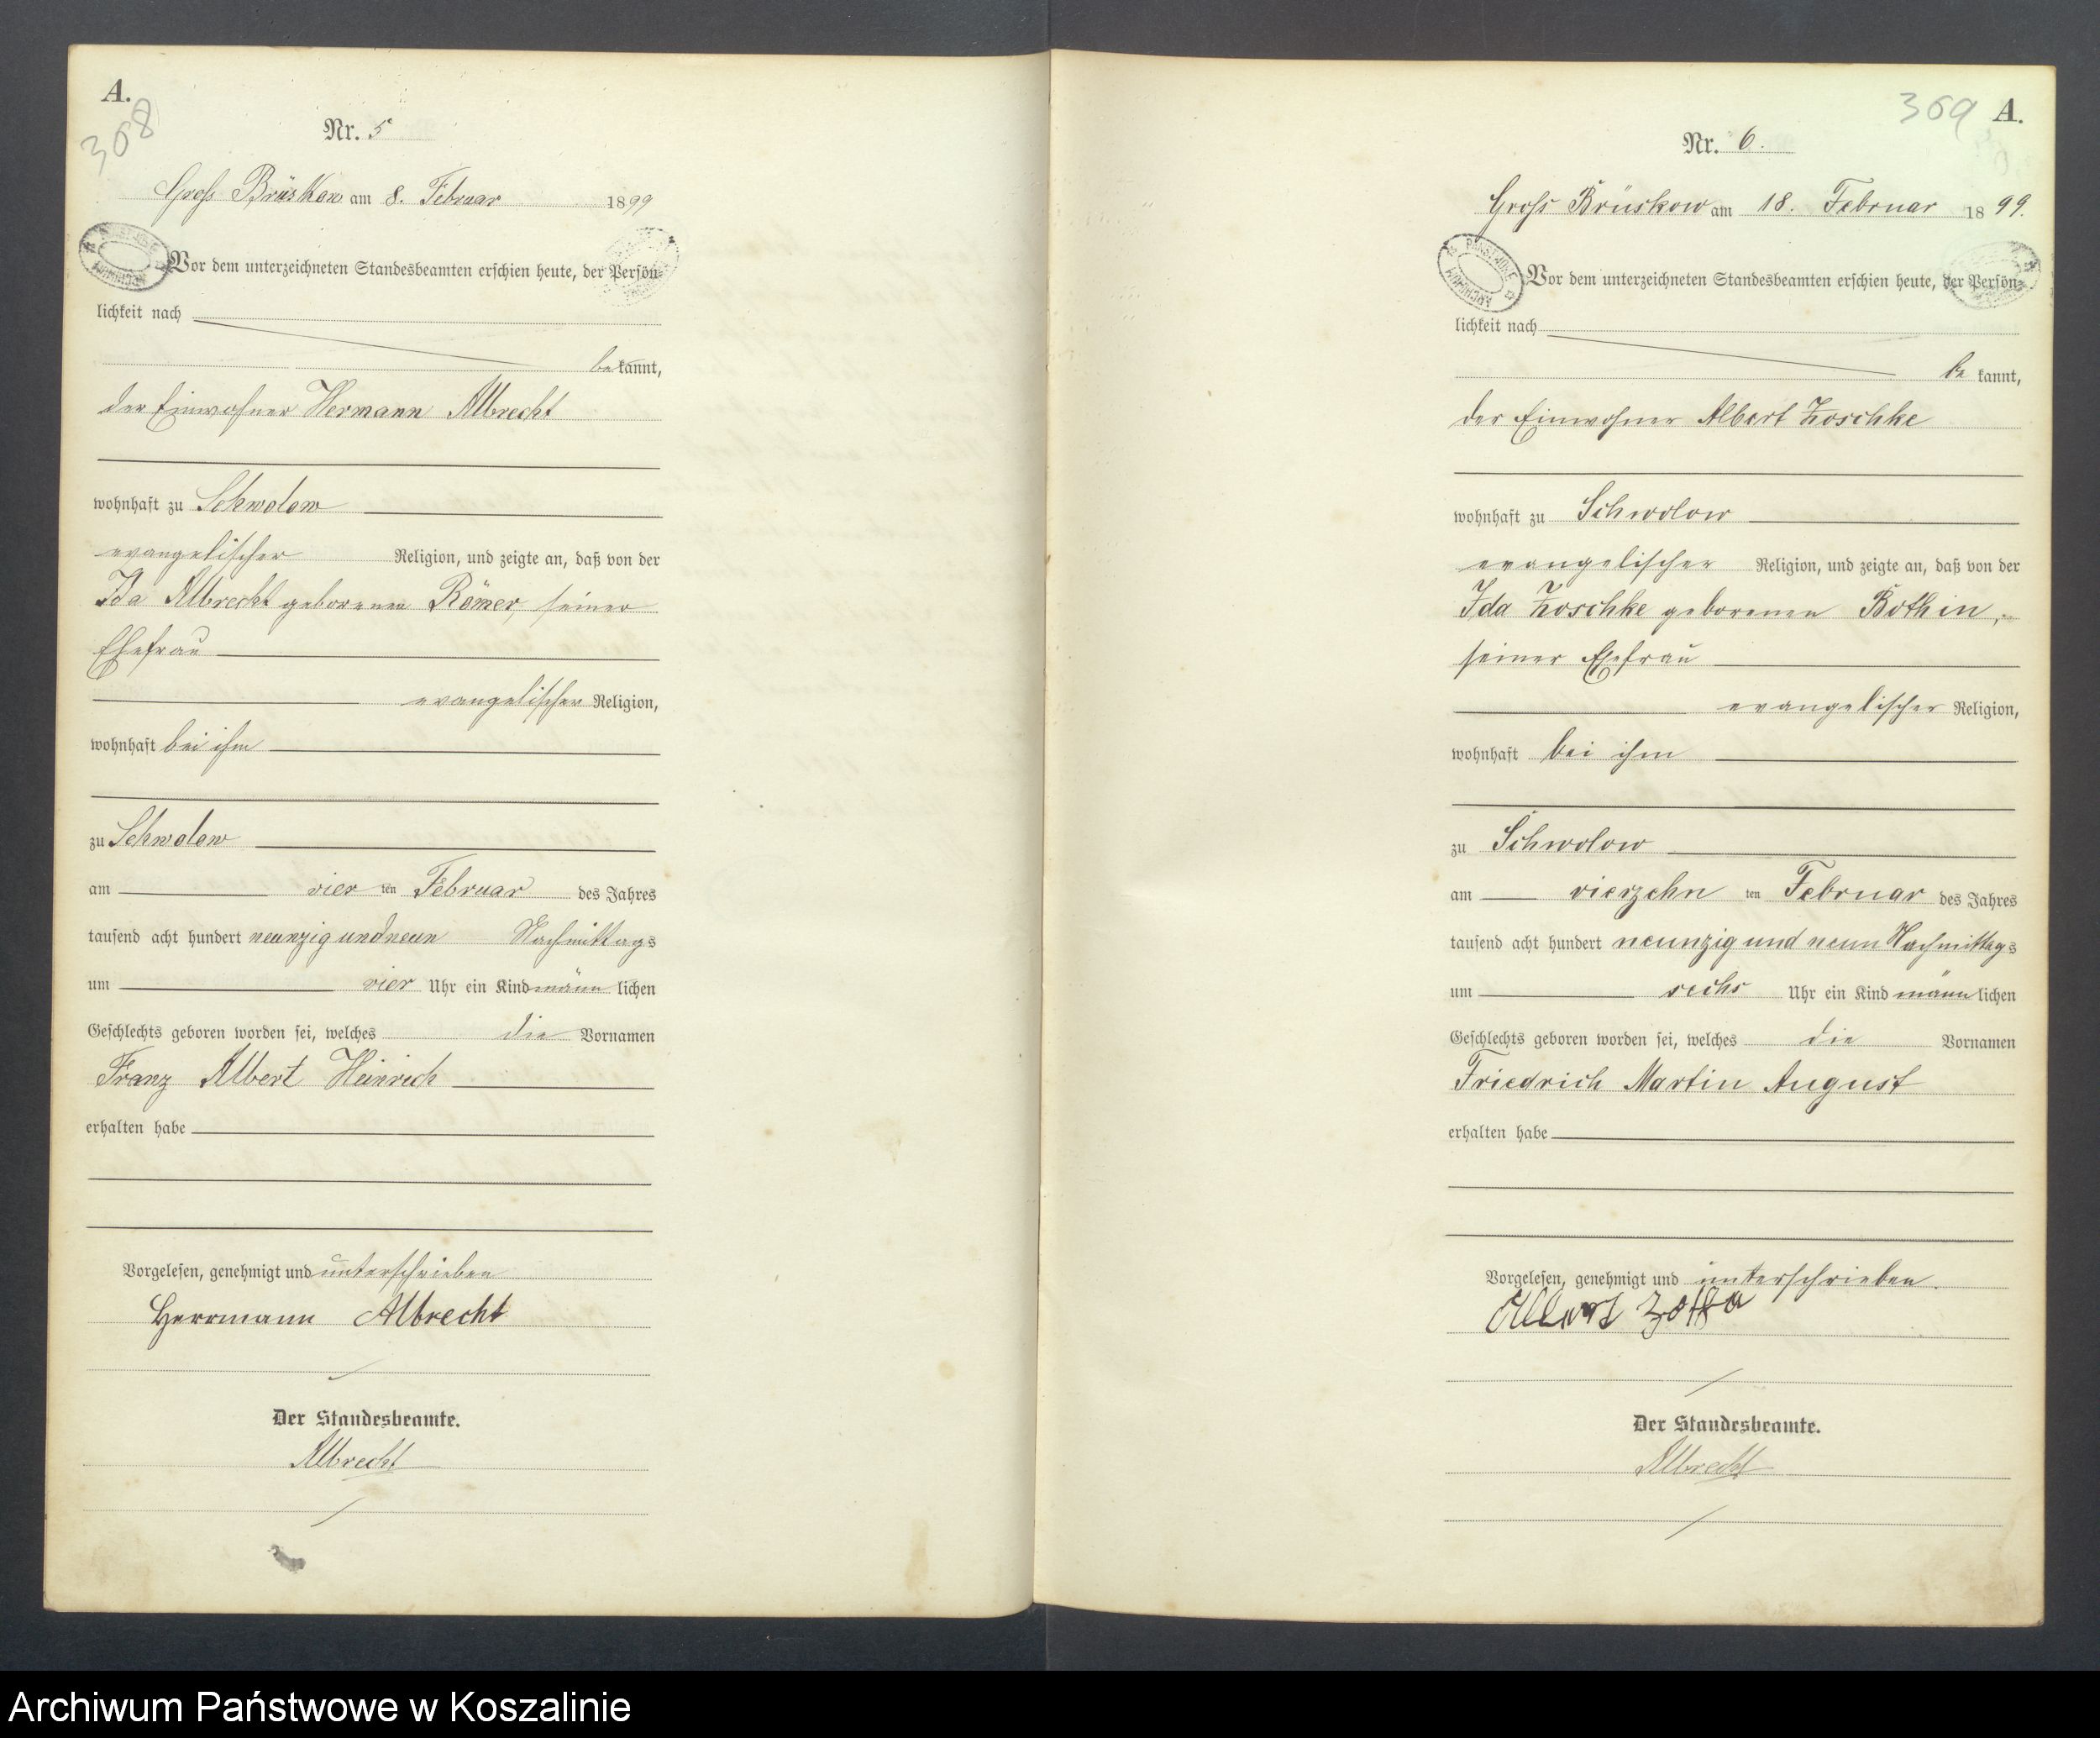 A.
308
Nr. 5
Groß Brüskow am 8. Februar 1899
Vor dem unterzeichneten Standesbeamten erschien heute, der Persön-
lichkeit nach
bekannt,
der Einwohner Hermann Albrecht
wohnhaft zu Schwolow
evangelischer Religion, und zeigte an, daß von der
Ida Albrecht geborenen Römer, seiner
Ehefrau
evangelischer Religion,
wohnhaft bei ihm
zu Schwolow
am vier ten Februar des Jahres
tausend acht hundert neunzig und neun Nachmittags
um vier Uhr ein Kind männlichen
Geschlechts geboren worden sei, welches die Vornamen
Franz Albert Heinrich
erhalten habe
Vorgelesen, genehmigt und unterschrieben
Herrmann Albrecht
Der Standesbeamte.
Albrecht
369 A.
Nr. 6.
Groß Brüskow am 18. Februar 1899.
Vor dem unterzeichneten Standesbeamten erschien heute, der Persön-
lichkeit nach
bekannt,
der Einwohner Albert Zoschke
wohnhaft zu Schwolow
evangelischer Religion, und zeigte an, daß von der
Ida Zoschke geborenen Bothin,
seiner Ehefrau
evangelischer Religion,
wohnhaft bei ihm
zu Schwolow
am vierzehn ten Februar des Jahres
tausend acht hundert neunzig und neun Nachmittags
um sechs Uhr ein Kind männlichen
Geschlechts geboren worden sei, welches die Vornamen
Friedrich Martin August
erhalten habe
Vorgelesen, genehmigt und unterschrieben.
Albert
Der Standesbeamte.
Albrecht
Archiwum Państwowe w Koszalinie